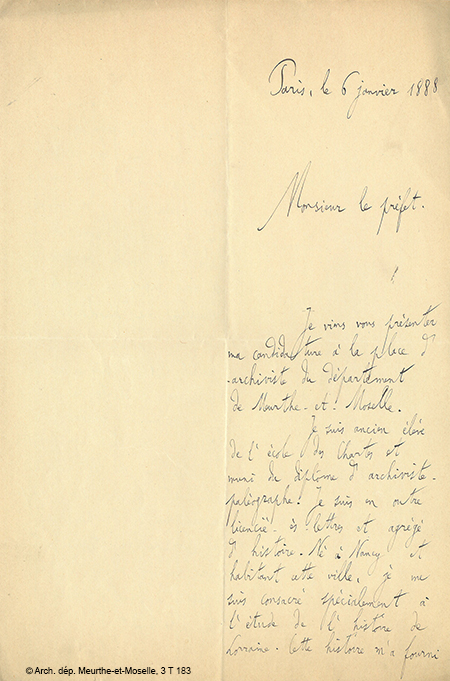 Paris, le 6 janvier 1888
Monsieur le préfet.
Je viens vous présenter
ma candidature à la place d'
archiviste du département
de Meurthe-et-Moselle.
Je suis ancien élève
de l'école des Chartes et
muni du diplome d'archiviste-
paléographe. Je suis en outre
licencié-ès-lettres et agrégé
d'histoire. Né à Nancy et
habitant cette ville, je me
suis consacré spécialement à
l'étude de l'histoire de
Lorraine. Cette histoire m'a fourni
© Arch. dép. Meurthe-et-Moselle, 3 T 183